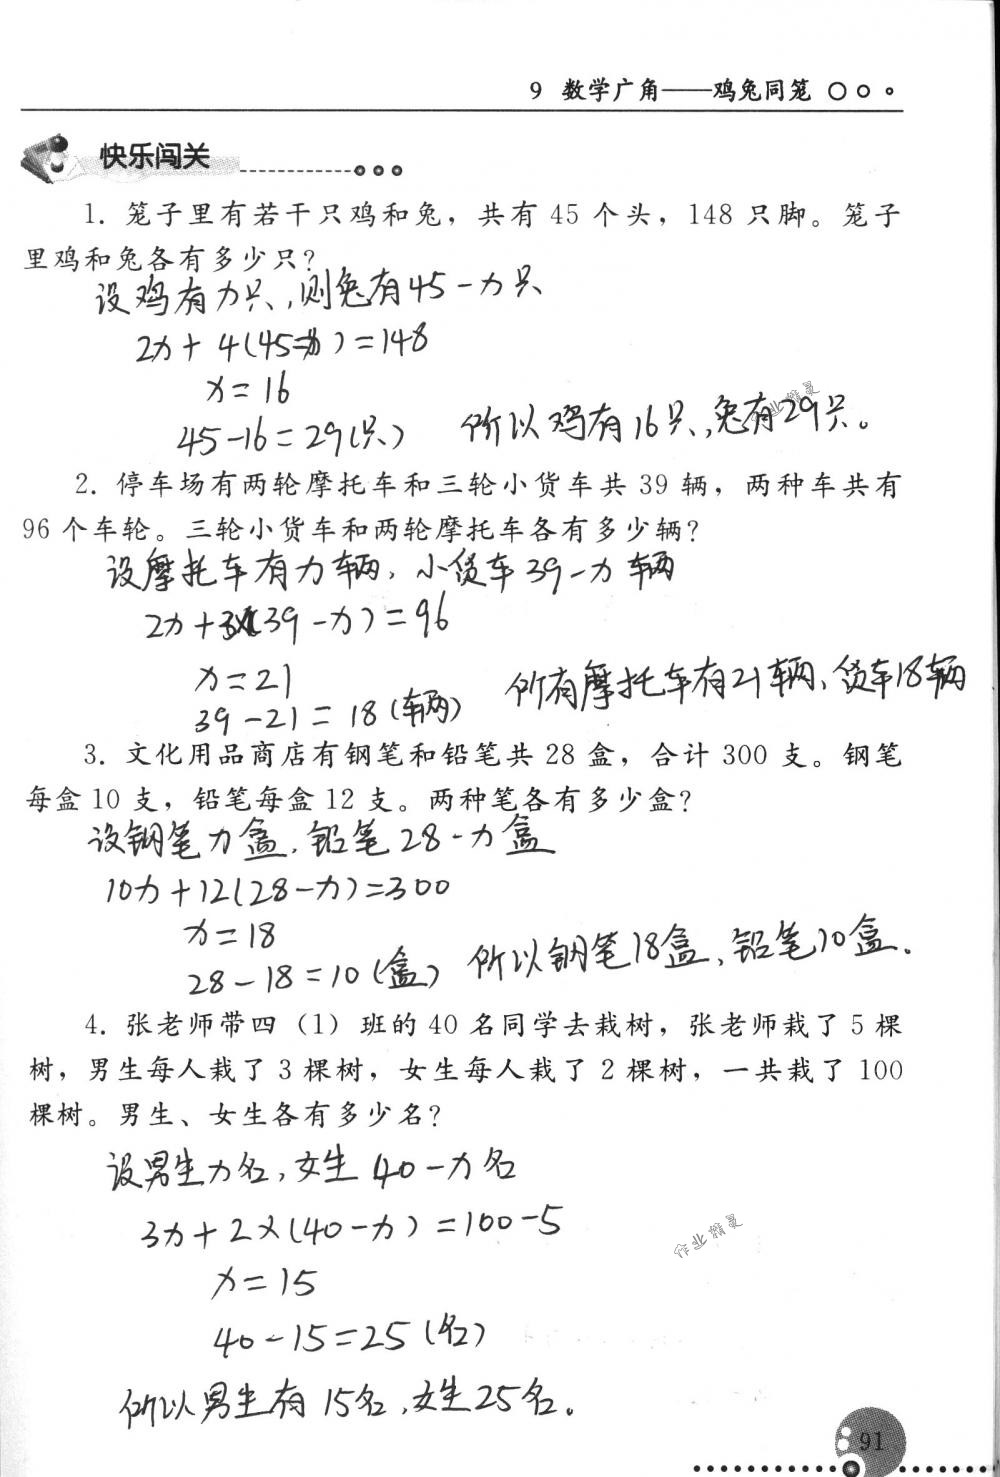 9 数学广角——鸡兔同笼
快乐闯关
1. 笼子里有若干只鸡和兔，共有 45 个头，148 只脚。笼子
里鸡和兔各有多少只？
设鸡有x只，则兔有45-x只
2x+4(45-x)=148
x=16
45-16=29(只) 所以鸡有16只，兔有29只。
作业精灵
2. 停车场有两轮摩托车和三轮小货车共 39 辆，两种车共有
96 个车轮。三轮小货车和两轮摩托车各有多少辆？
设摩托车有x辆，小货车39-x辆
2x+3×(39-x)=96
x=21
39-21=18(辆) 所有摩托车有21辆，货车18辆
3. 文化用品商店有钢笔和铅笔共 28 盒，合计 300 支。钢笔
每盒 10 支，铅笔每盒 12 支。两种笔各有多少盒？
设钢笔x盒，铅笔28-x盒
10x+12(28-x)=300
x=18
28-18=10(盒) 所以钢笔18盒，铅笔10盒.
4. 张老师带四（1）班的 40 名同学去栽树，张老师栽了 5 棵
树，男生每人栽了 3 棵树，女生每人栽了 2 棵树，一共栽了 100
棵树。男生、女生各有多少名？
设男生x名，女生40-x名
3x+2×(40-x)=100-5
作业精灵
x=15
40-15=25(名)
所以男生有15名，女生25名。
91